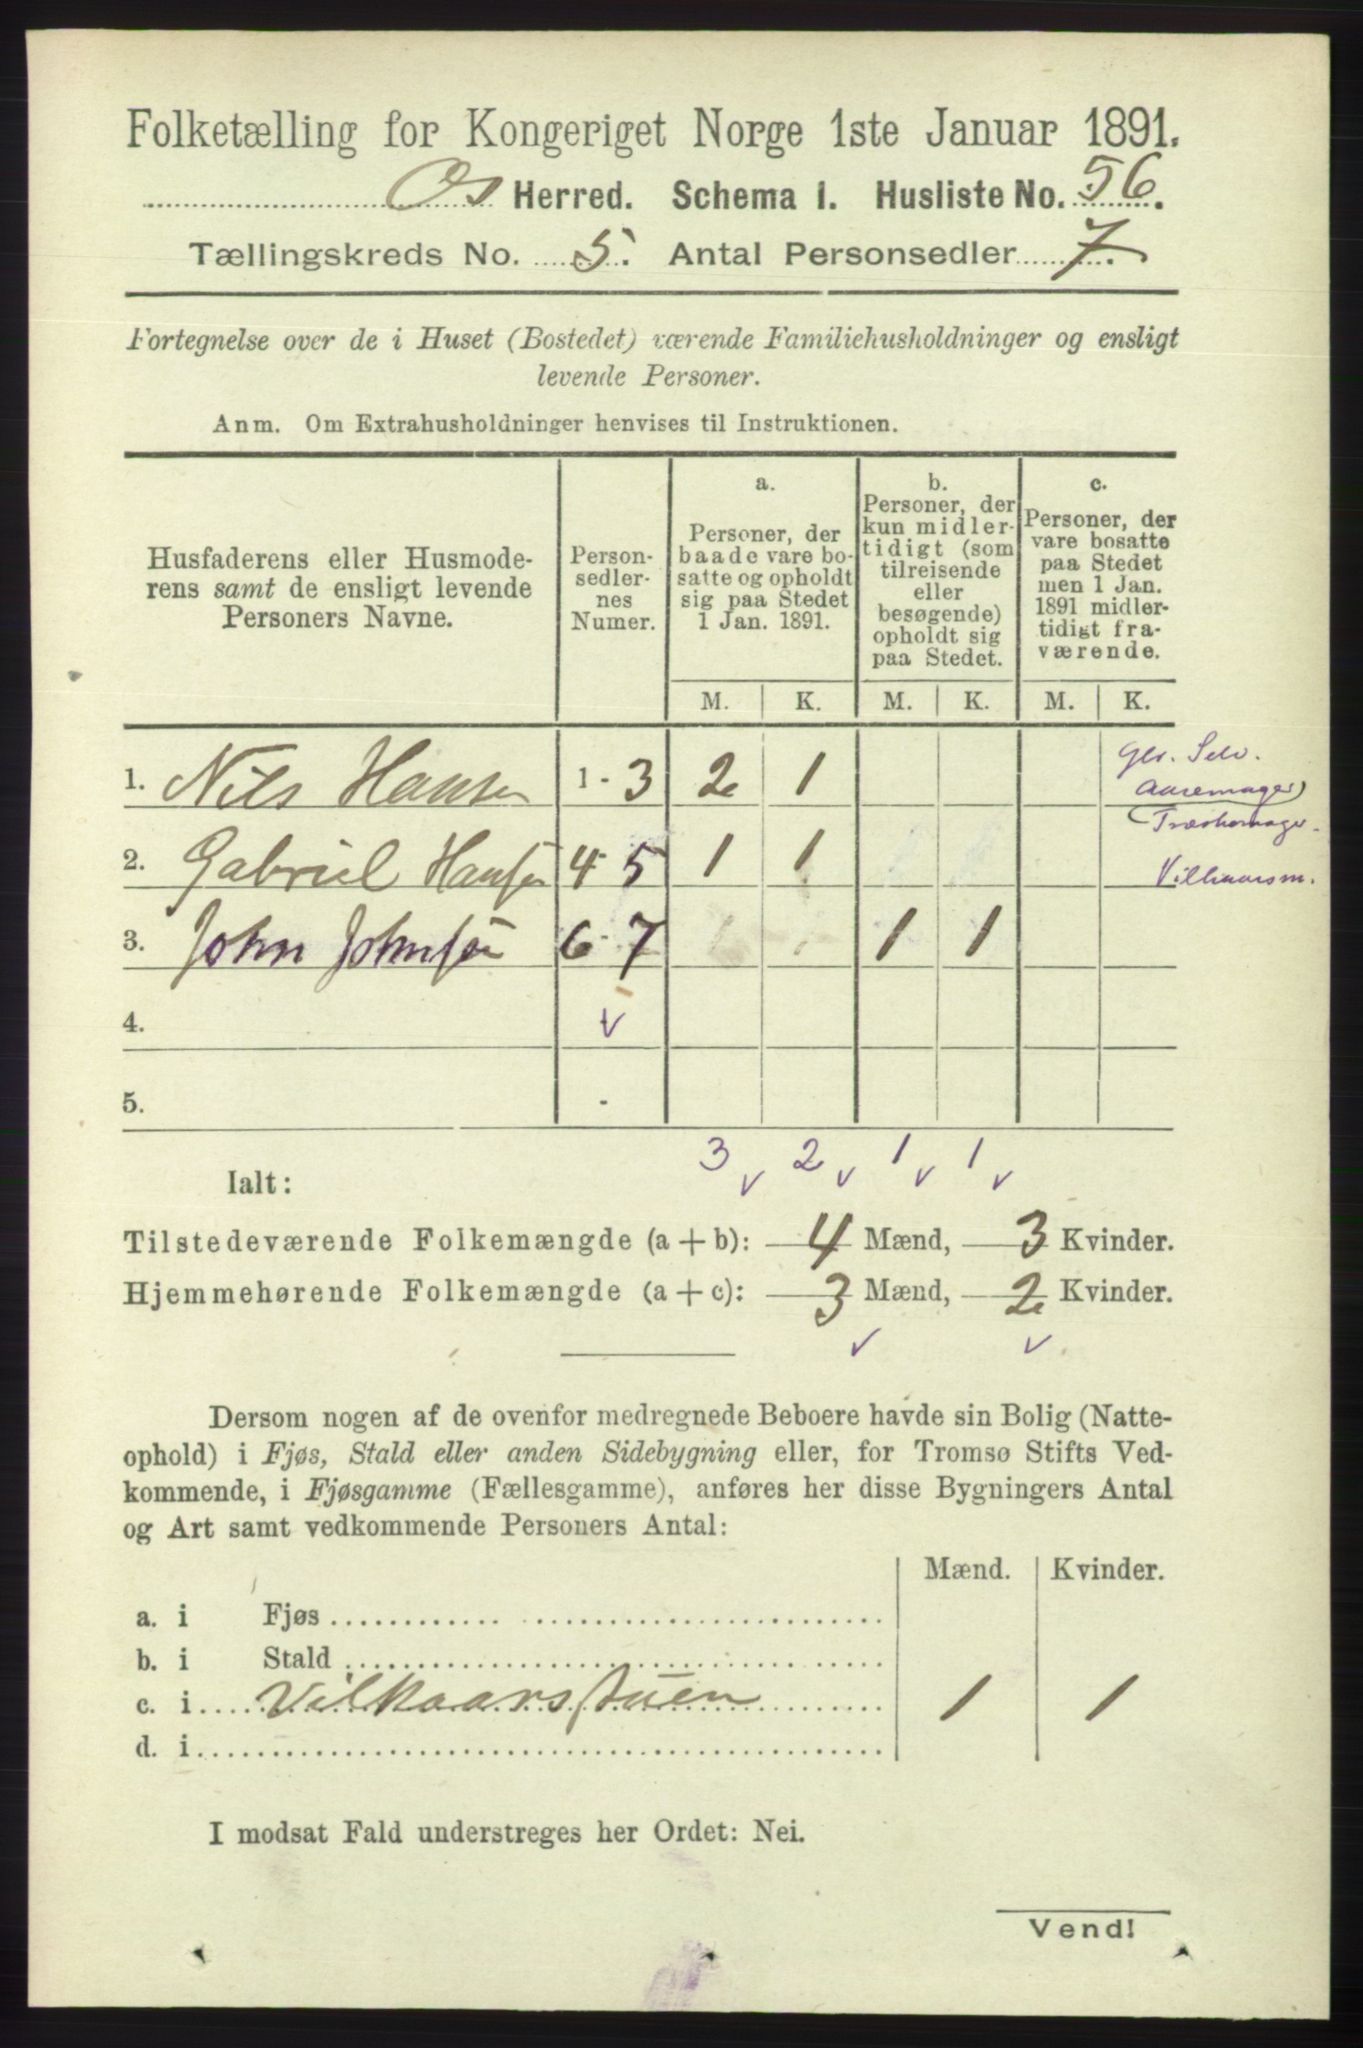 Folketælling for Kongeriget Norge 1ste Januar 1891.
Os Herred. Schema I. Husliste No. 56.
Tællingskreds No. 5. Antal Personsedler 7.
Fortegnelse over de i Huset (Bostedet) værende Familiehusholdninger og ensligt
levende Personer.
Anm. Om Extrahusholdninger henvises til Instruktionen.
Husfaderens eller Husmode-
rens samt de ensligt levende
Personers Navne.
Person-
sedler-
nes
Numer.
a.
Personer, der
baade vare bo-
satte og opholdt
sig paa Stedet
1 Jan. 1891.
b.
Personer, der
kun midler-
tidigt (som
tilreisende
eller
besøgende)
opholdt sig
paa Stedet.
c.
Personer, der
vare bosatte
paa Stedet
men 1 Jan.
1891 midler-
tidigt fra-
værende.
M. K. M. K. M. K.
1. Nils Hansen 1 - 3 2 1
2. Gabriel Hansen 4 - 5 1 1 Vilkaarsm.
3. John Johnsen 6 - 7 1 1
4.
5. -
3 2 1 1
Ialt:
Tilstedeværende Folkemængde (a + b): 4 Mænd, 3 Kvinder.
Hjemmehørende Folkemængde (a + c): 3 Mænd, 2 Kvinder.
Dersom nogen af de ovenfor medregnede Beboere havde sin Bolig (Natte-
ophold) i Fjøs, Stald eller anden Sidebygning eller, for Tromsø Stifts Ved-
kommende, i Fjøsgamme (Fællesgamme), anføres her disse Bygningers Antal
og Art samt vedkommende Personers Antal:
Mænd. Kvinder.
a. i Fjøs
b. i Stald
c. i Vilkaarsstuen 1 1
d. i
I modsat Fald understreges her Ordet: Nei.
Vend!